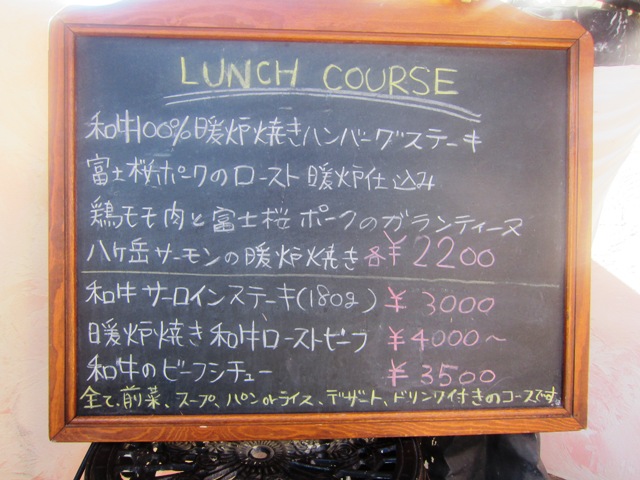 LUNCH COURSE
和牛100%暖炉焼きハンバーグステーキ
富士桜ポークのロースト 暖炉仕込み
鶏モモ肉と富士桜ポークのガランティーヌ
八ヶ岳サーモンの暖炉焼き 各¥2200
和牛サーロインステーキ(180g) ¥3000
暖炉焼き和牛ローストビーフ ¥4000〜
和牛のビーフシチュー ¥3500
全て、前菜、スープ、パンorライス、デザート、ドリンク付きのコースです。